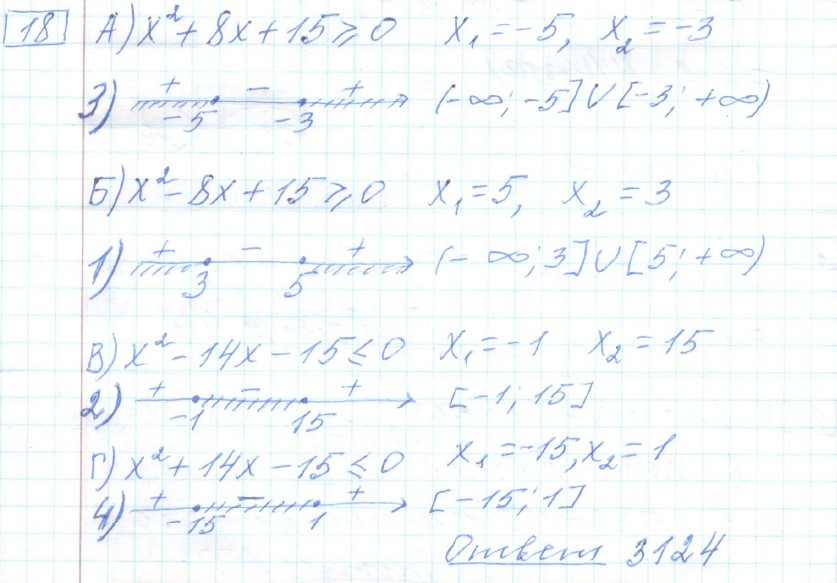 18 А) x² + 8x + 15 ⩾ 0 x₁ = -5, x₂ = -3
3) + - + -5 -3 (-∞; -5] ∪ [-3; +∞)
Б) x² - 8x + 15 ⩾ 0 x₁ = 5, x₂ = 3
1) + - + 3 5 (-∞; 3] ∪ [5; +∞)
В) x² - 14x - 15 ≤ 0 x₁ = -1 x₂ = 15
2) + - + -1 15 [-1; 15]
Г) x² + 14x - 15 ≤ 0 x₁ = -15, x₂ = 1
4) + - + -15 1 [-15; 1]
Ответ 3124